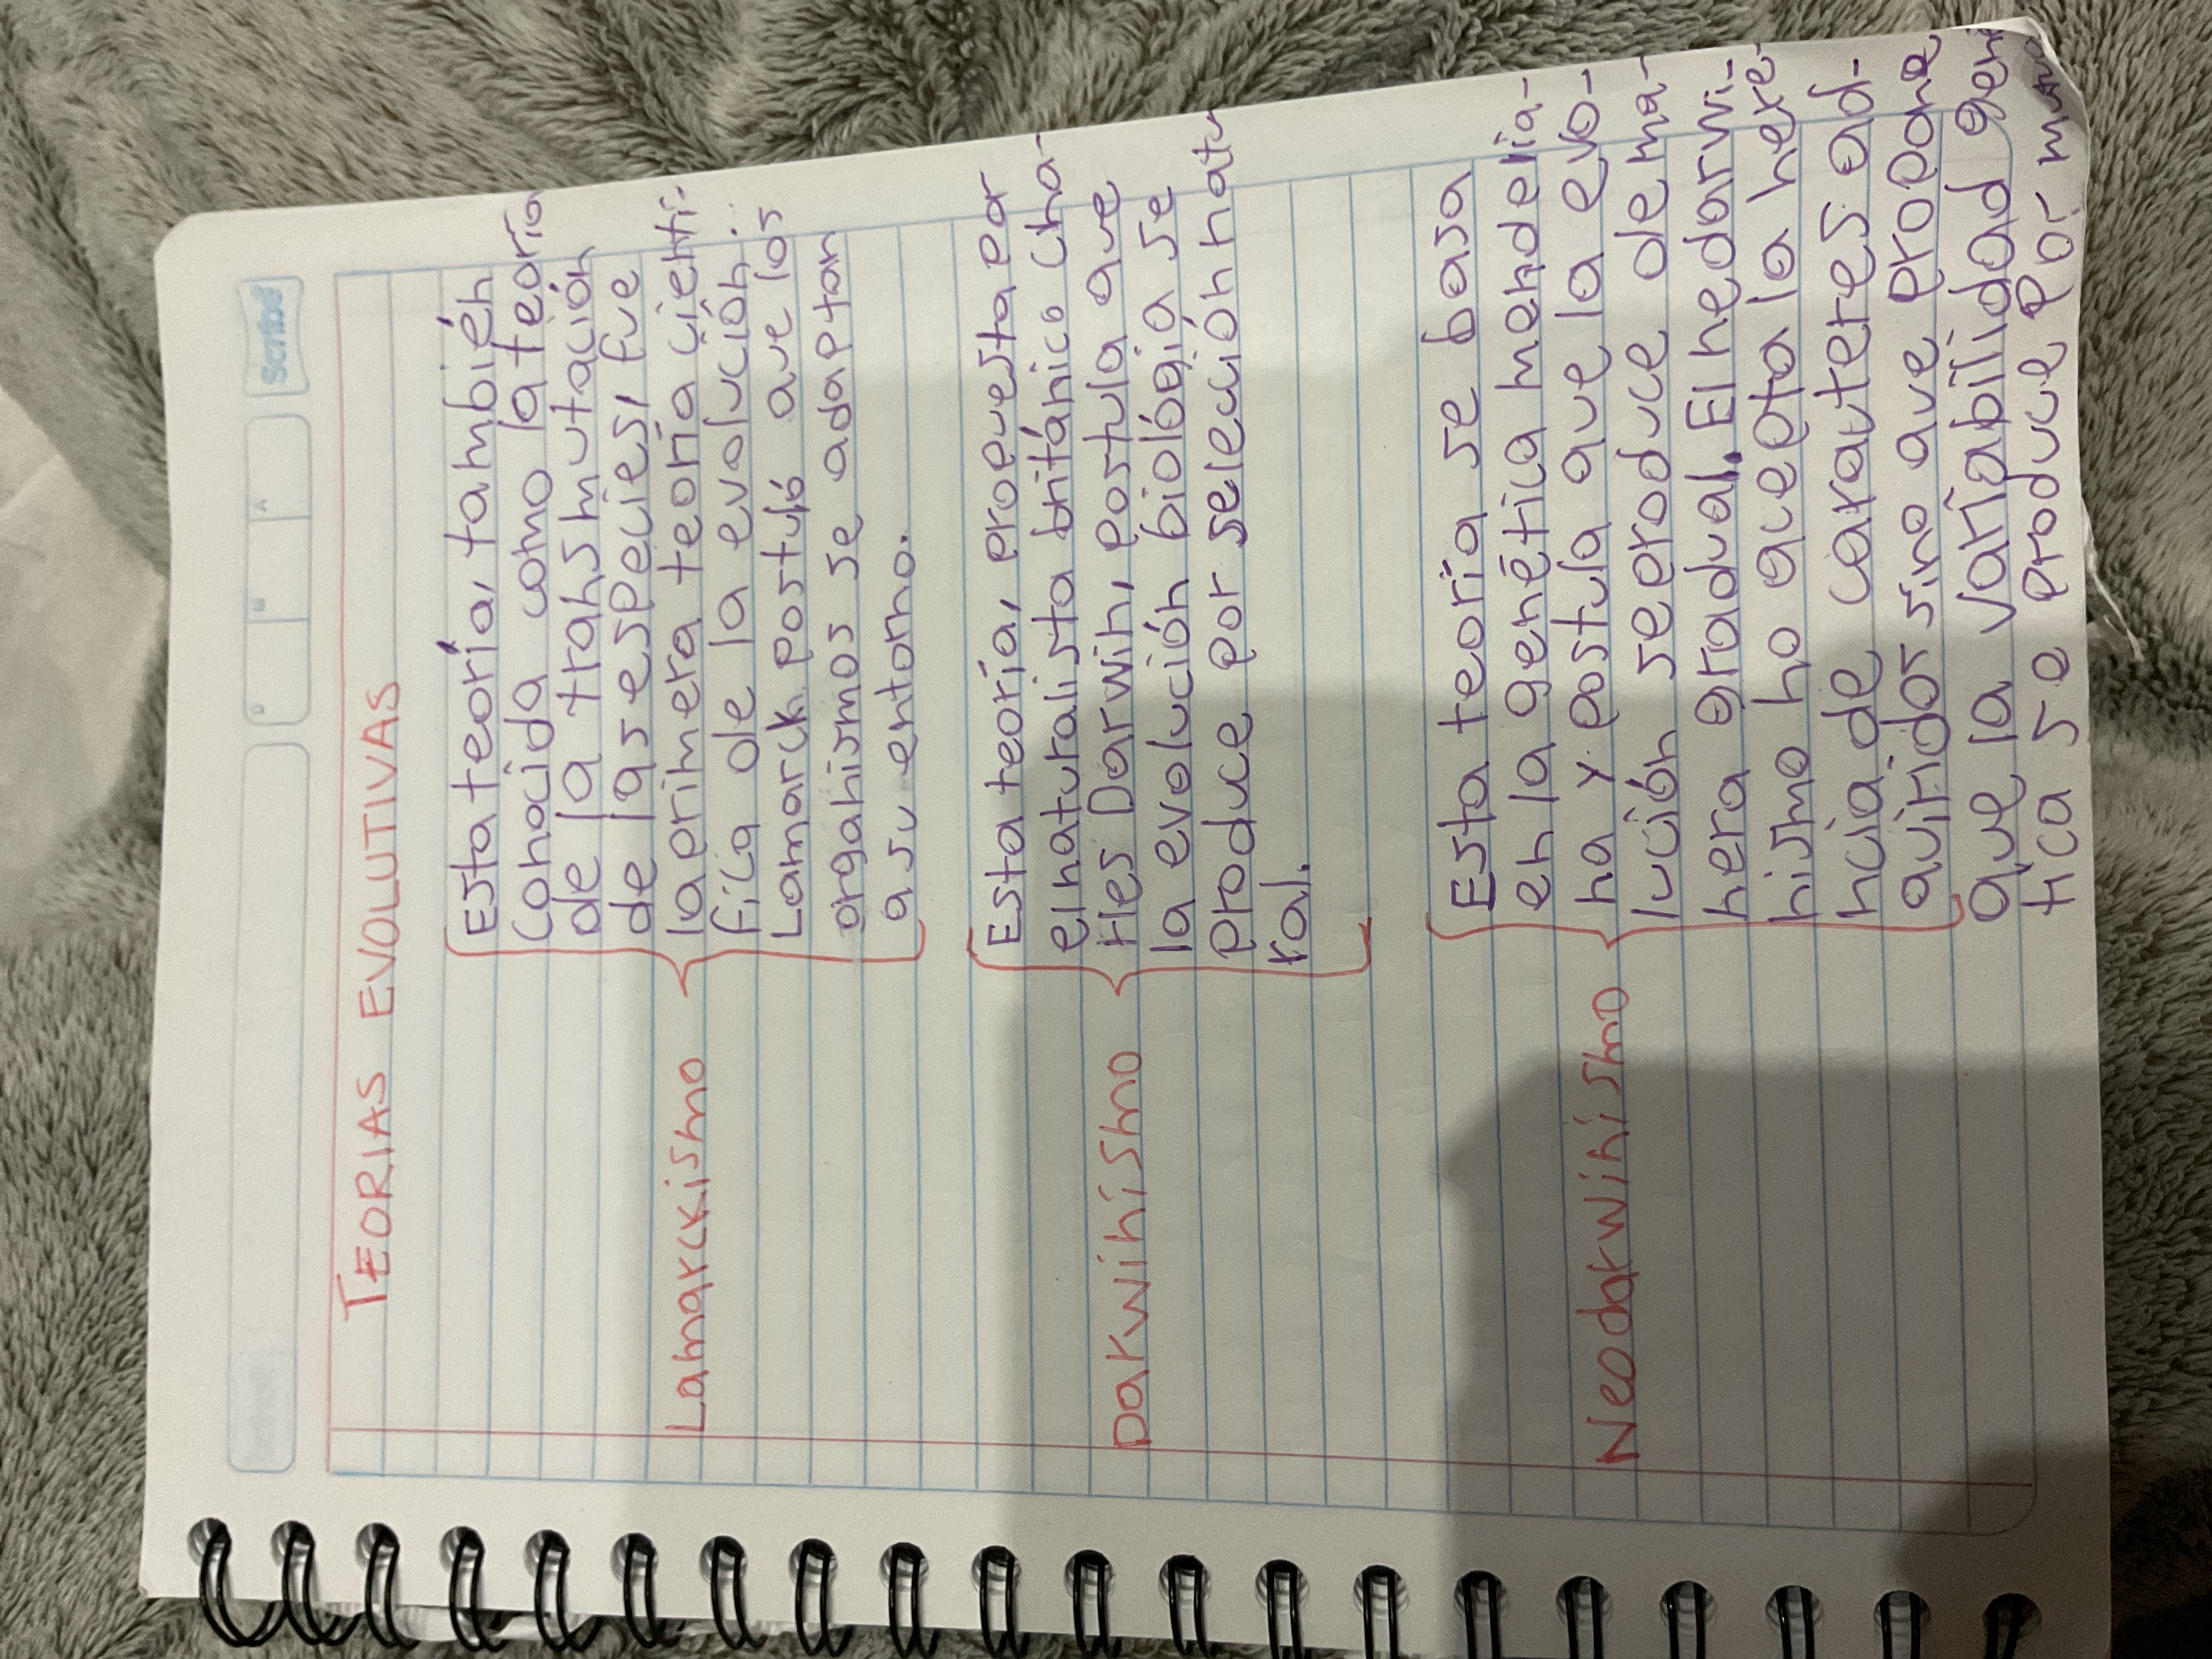 Scribe
TEORIAS EVOLUTIVAS
Lamarckismo
Esta teoría, también
Conocida como la teoría
de la transmutación
de las especies, fue
la primera teoría cientí-
fica de la evolución.
Lamarck postuló que los
organismos se adaptan
a su entorno.
Darwinismo
Esta teoría, propuesta por
el naturalista británico Cha-
rles Darwin, postula que
la evolución biológia se
produce por selección natu
ral.
Neodarwinismo
Esta teoría se basa
en la genética mendelia-
na y postula que la evo-
lución se produce de ma-
nera gradual. El nedarwi-
nismo no acepta la here-
ncia de carauteres ad-
quiridos sino que propone
que la variabilidad gené
tica se produce por muta